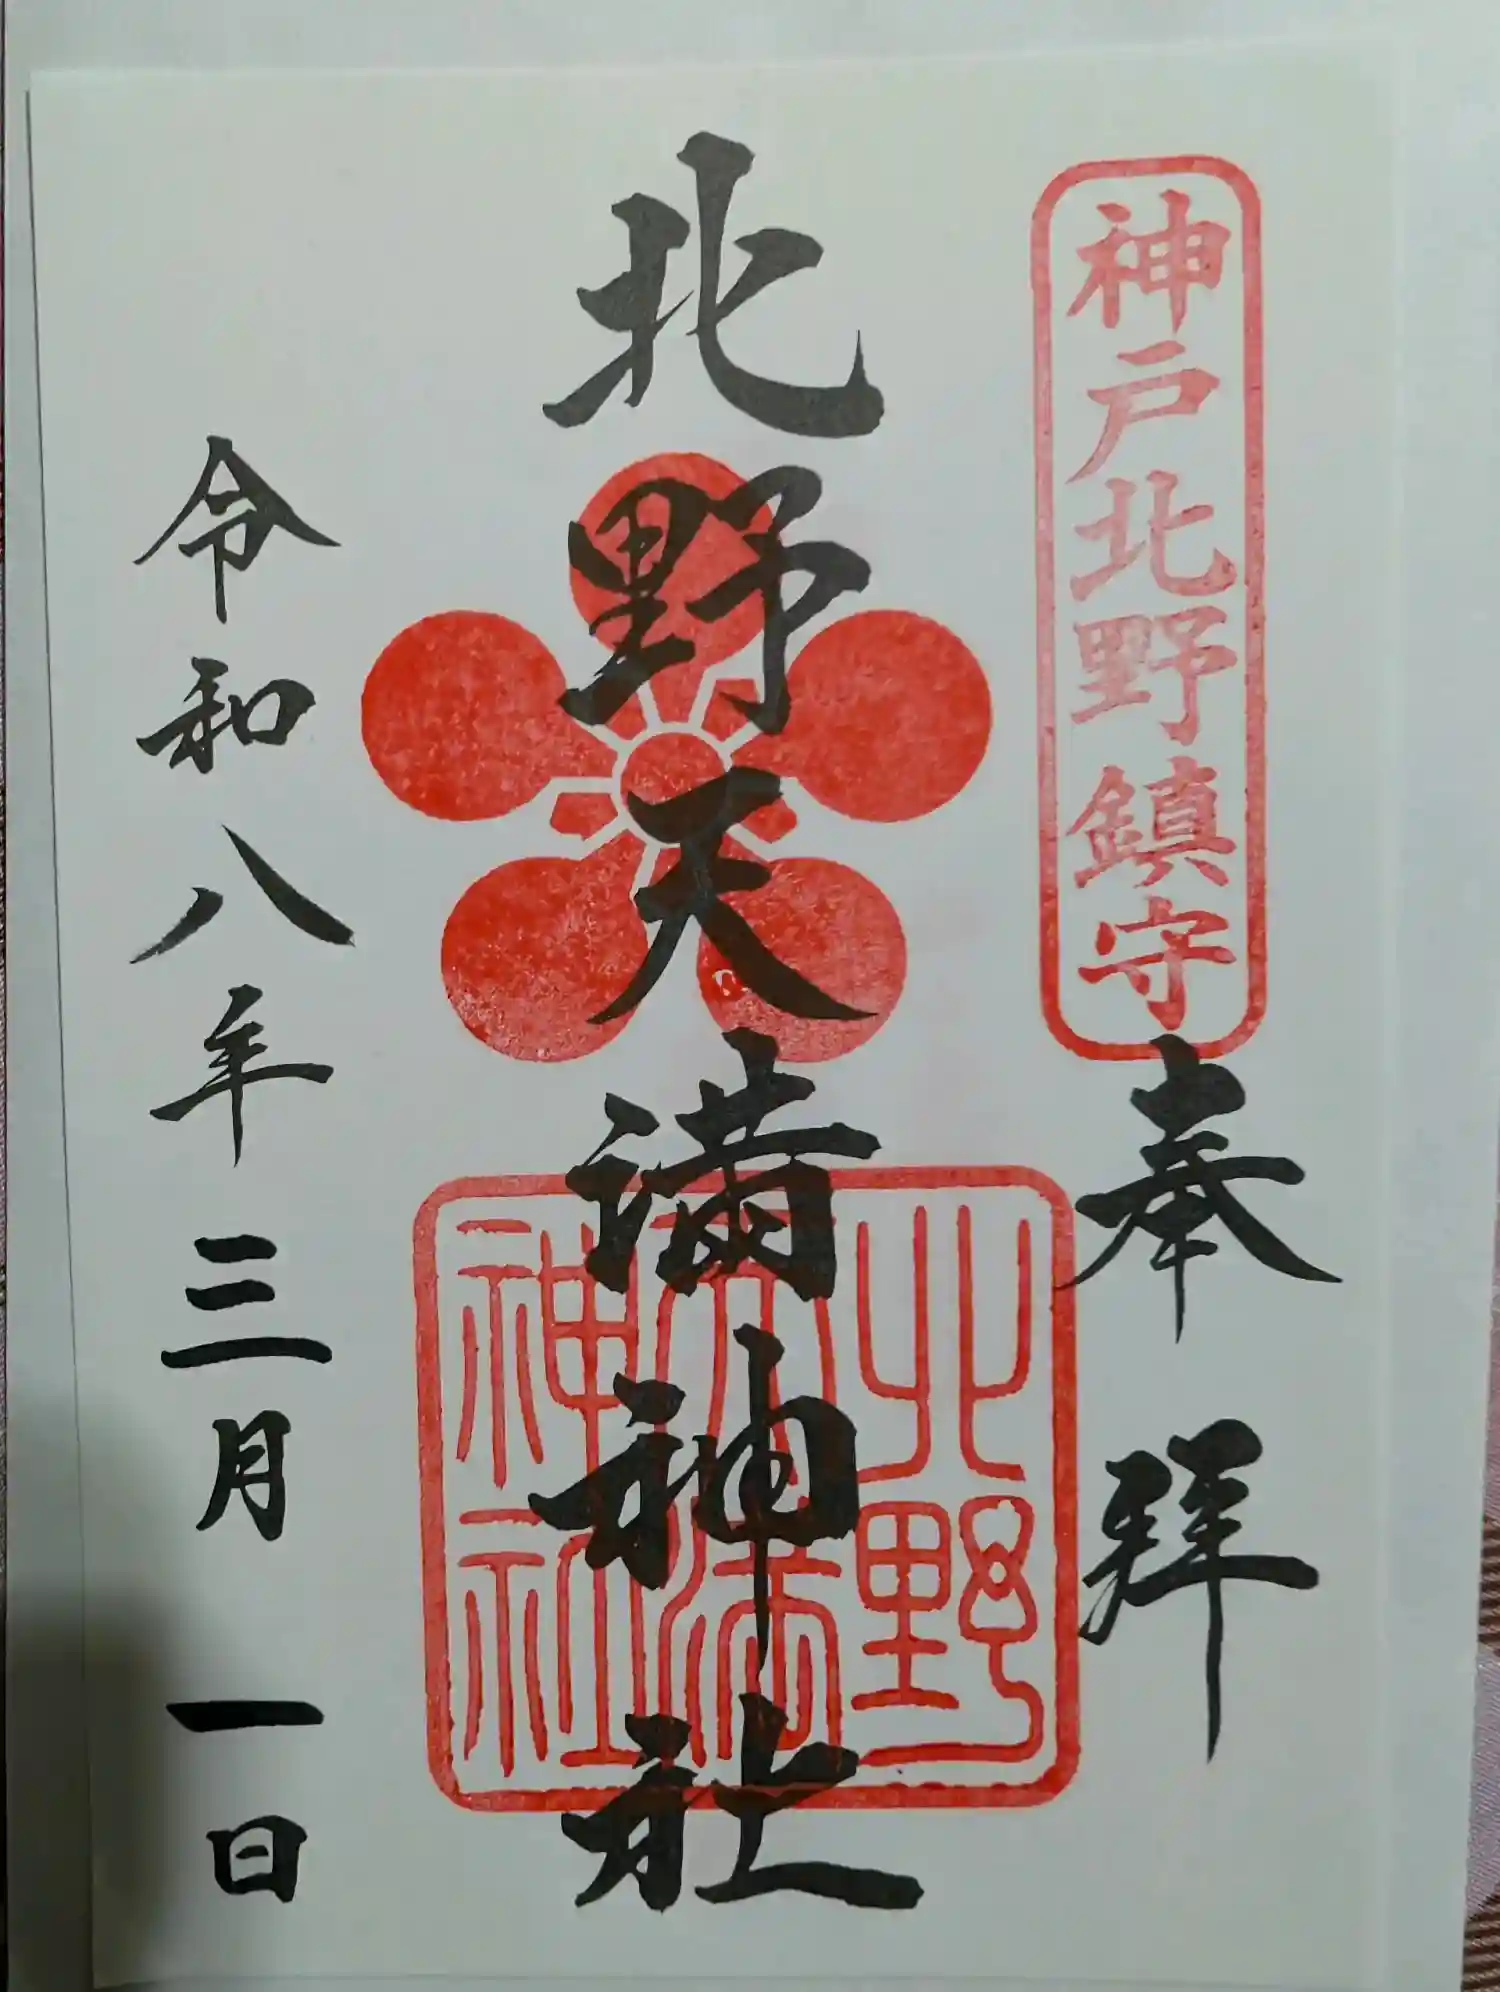 神戸北野鎮守
奉拝
北野天満神社
北野
天満
神社
令和八年三月一日